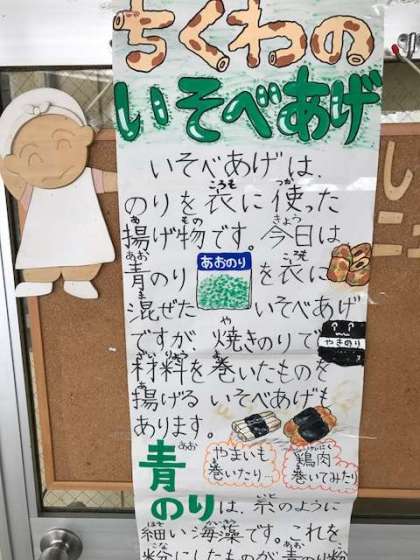 ちくわの
いそべあげ
いそべあげは、
のりを衣に使った
揚げ物です。今日は
青のり あおのり を衣に
混ぜた いそべあげ
ですが、焼きのりで やきのり
材料を巻いたものを
揚げる いそべあげも
あります。
やまいも
巻いたり…
鶏肉
巻いてみたり
青
のりは、糸のように
細い海藻です。これを
粉にしたものが青の